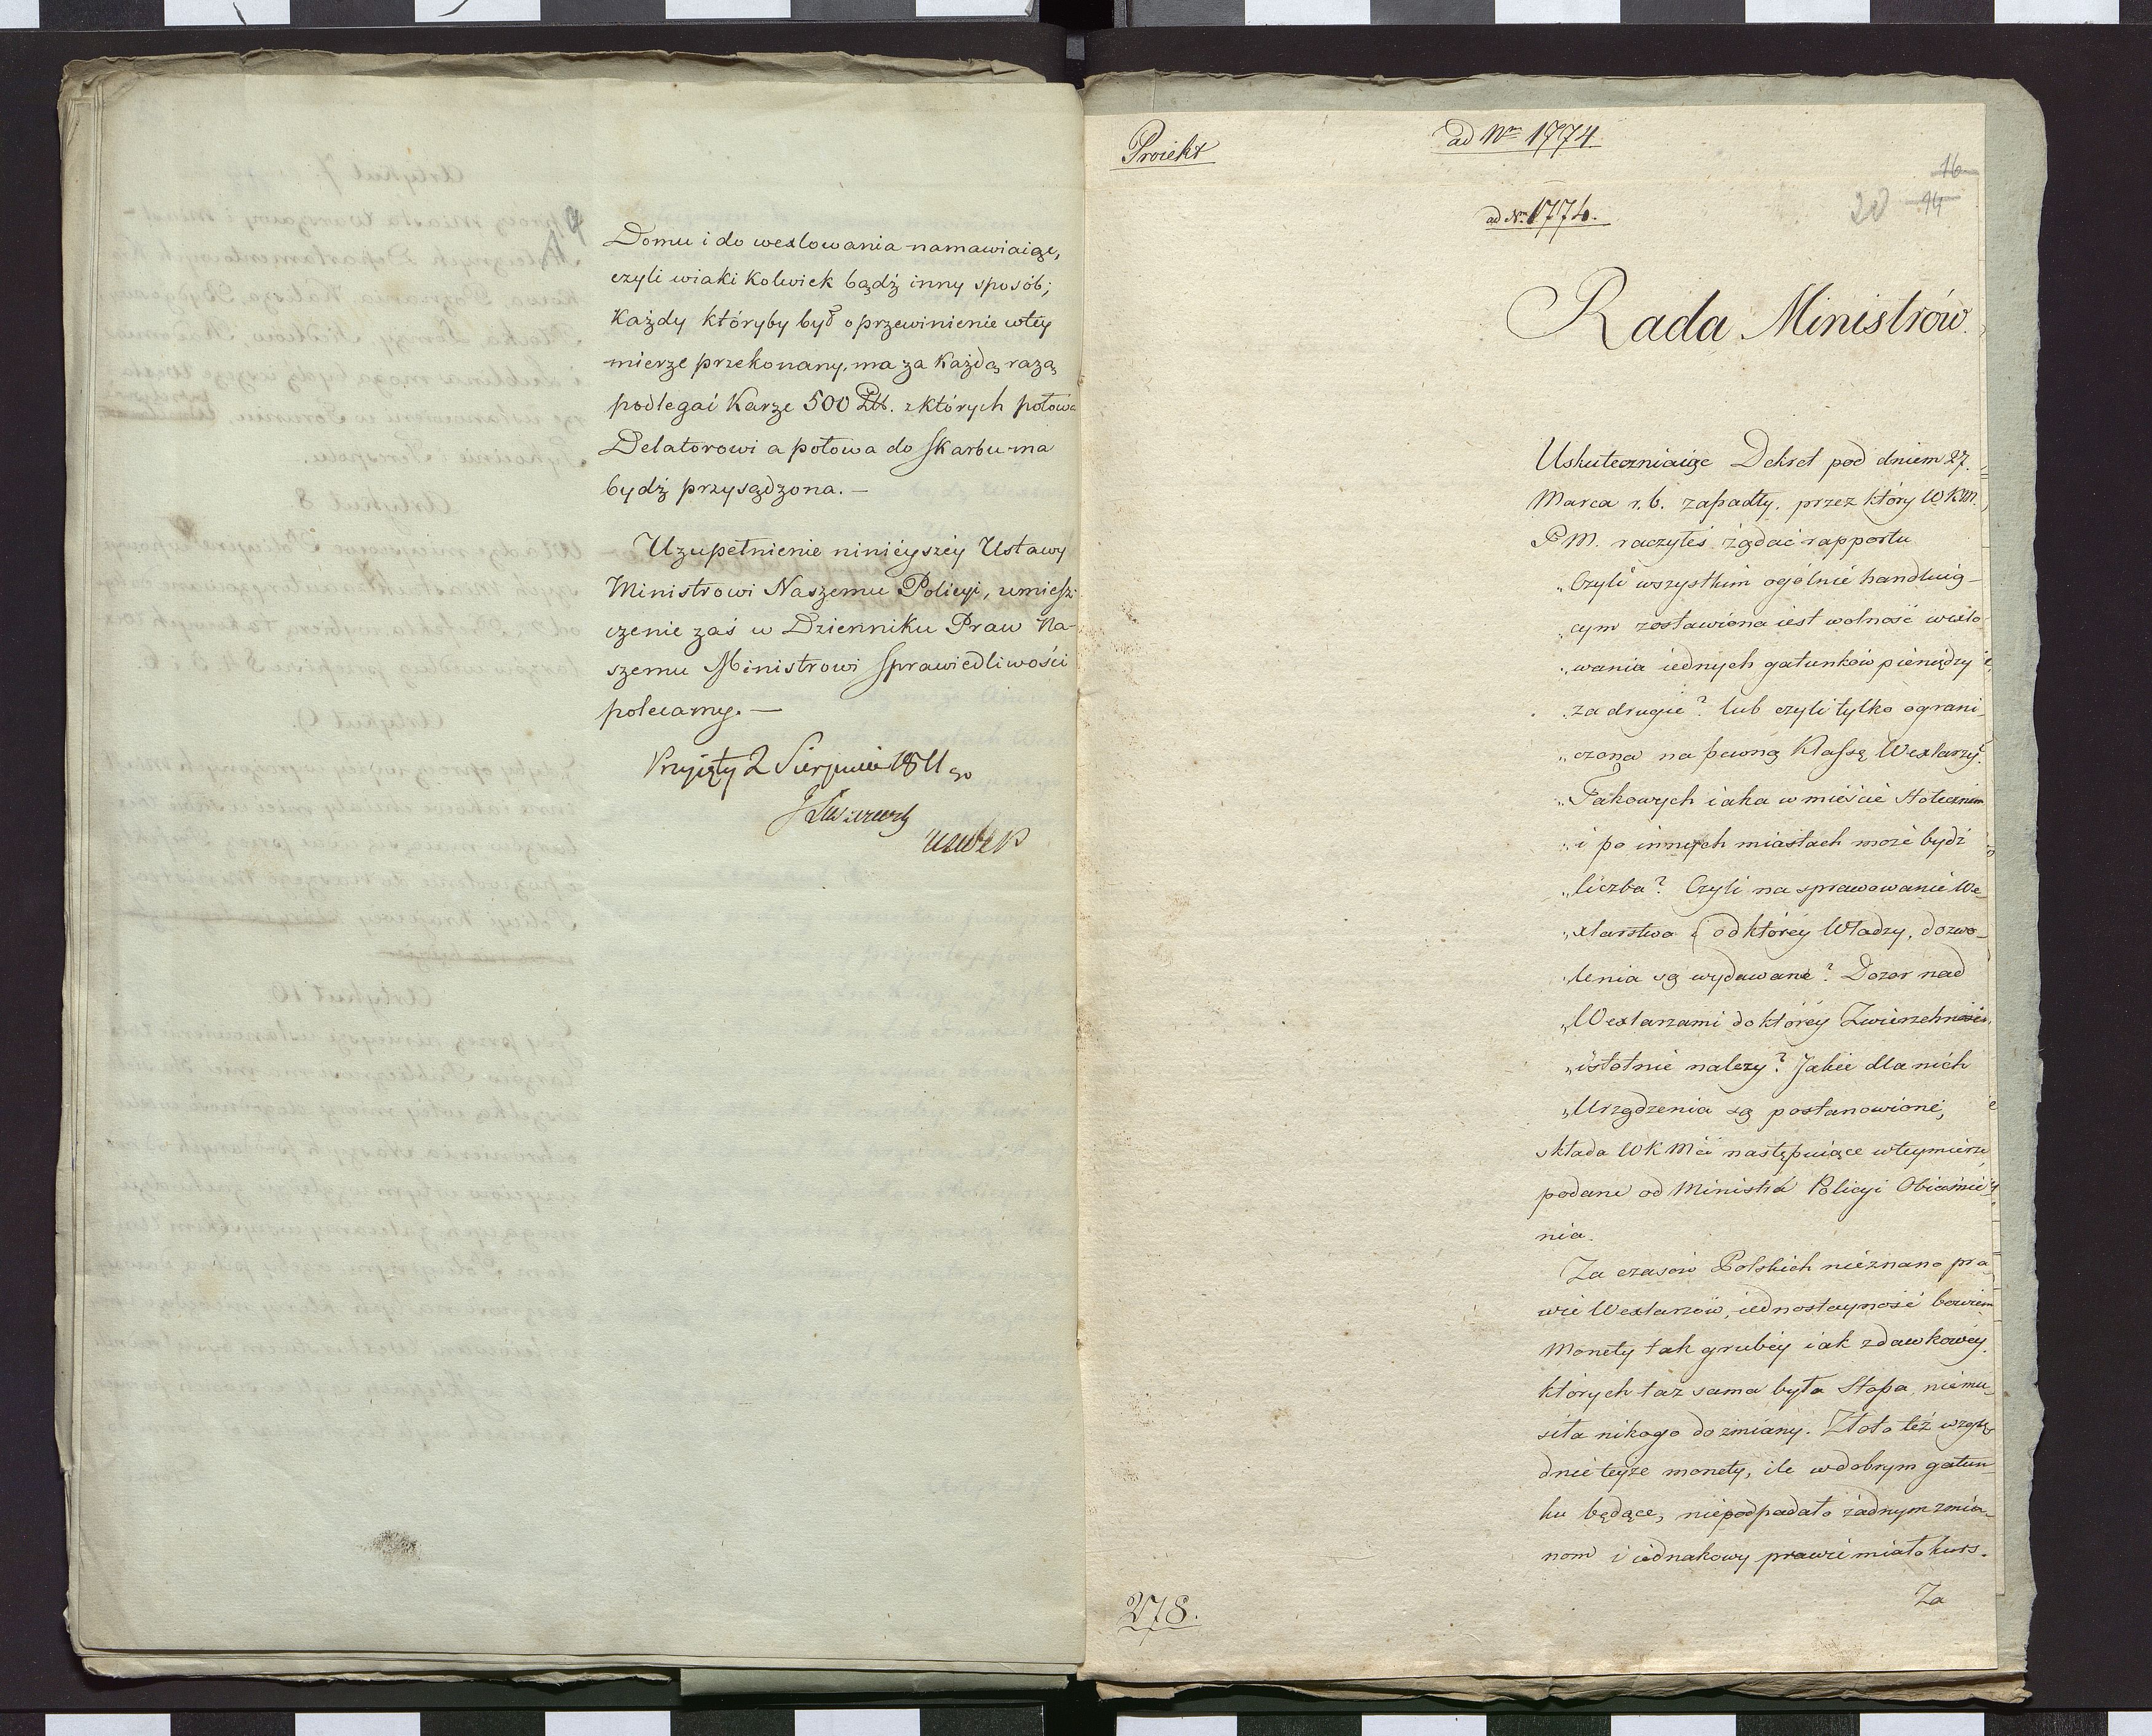 Domu i do wexlowania namawiaiąc,
czyli wiaki kolwiek bądź inny sposób;
Każdy któryby był o przewinienie wtey
mierze przekonany, ma za każdą razą
podlegać karze 500 Złł. z których połowa
Delatorowi a połowa do Skarbu ma
bydź przysądzona. —
Uzupełnienie ninieyszéy Ustawy
Ministrowi Naszemu Policyi, umiesz-
czenie zaś w Dzienniku Praw Na-
szemu Ministrowi Sprawiedliwości
polecamy. —
Przyięty 2 Sierpnia 1811 go
Proiekt
ad Nrm 1774.
16
20 14
ad Nrm 1774.
Rada Ministrów.
Uskuteczniaiąc Dekret pod dniem 27.
Marca r. b. zapadły, przez który WKM.
P M. raczyłeś żądać rapportu
„Czyli wszystkim ogólnie handluią-
„cym zostawiona iest wolność wexlo-
„wania iednych gatunków pieniędzy
„za drugie? lub czyli tylko ograni-
„czona na pewną Klassę Wexlarzy?
„Takowych iaka w mieście Stołecznem
„i po innych miastach może bydź
„liczba? Czyli na sprawowanie We-
„xlarstwa i od któréy Władzy, dozwo-
„lenia są wydawane? Dozor nad
„Wexlarzami do któréy Zwierzchności
„istotnie należy? Jakie dla nich
„Urządzenia są postanowione,
składa WKMci następuiące wteymierze
podane od Ministra Policyi Obiaśnie-
nia.
Za czasów Polskich nieznano pra-
wie Wexlarzów, iednostayność bowiem
Monety tak grubéy iak zdawkowéy.
których taż sama była Stopa, niemu-
siła nikogo do zmiany. Złoto też wzglę-
dnie teyże monety, ile wdobrym gatun-
ku będące, niepodpadało żadnym zmia-
nom i iednakowy prawie miało kurs.
Za
278.